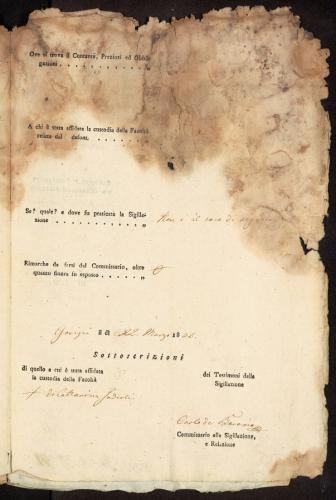 Ove si trova il Contante, Preziosi ed Obbli-
gazioni . . . . . . . . . . . . . „
A chi è stata affidata la custodia della Facoltà
relitta dal defont. . . . . . . . . . „
Se? quale? e dove fu praticata la Sigilla-
zione . . . . . . . . . . . . . „ Non è il caso di
Rimarche da farsi del Commissario, oltre
quanto finora fu esposto . . . . „
li Marzo 18
Sottoscrizioni
di quello a cui è stata affidata
la custodia della Facoltà
dei Testimoni della
Sigillazione
+ di Cattarina
Carlo de
Commissario alla Sigillazione,
e Relazione